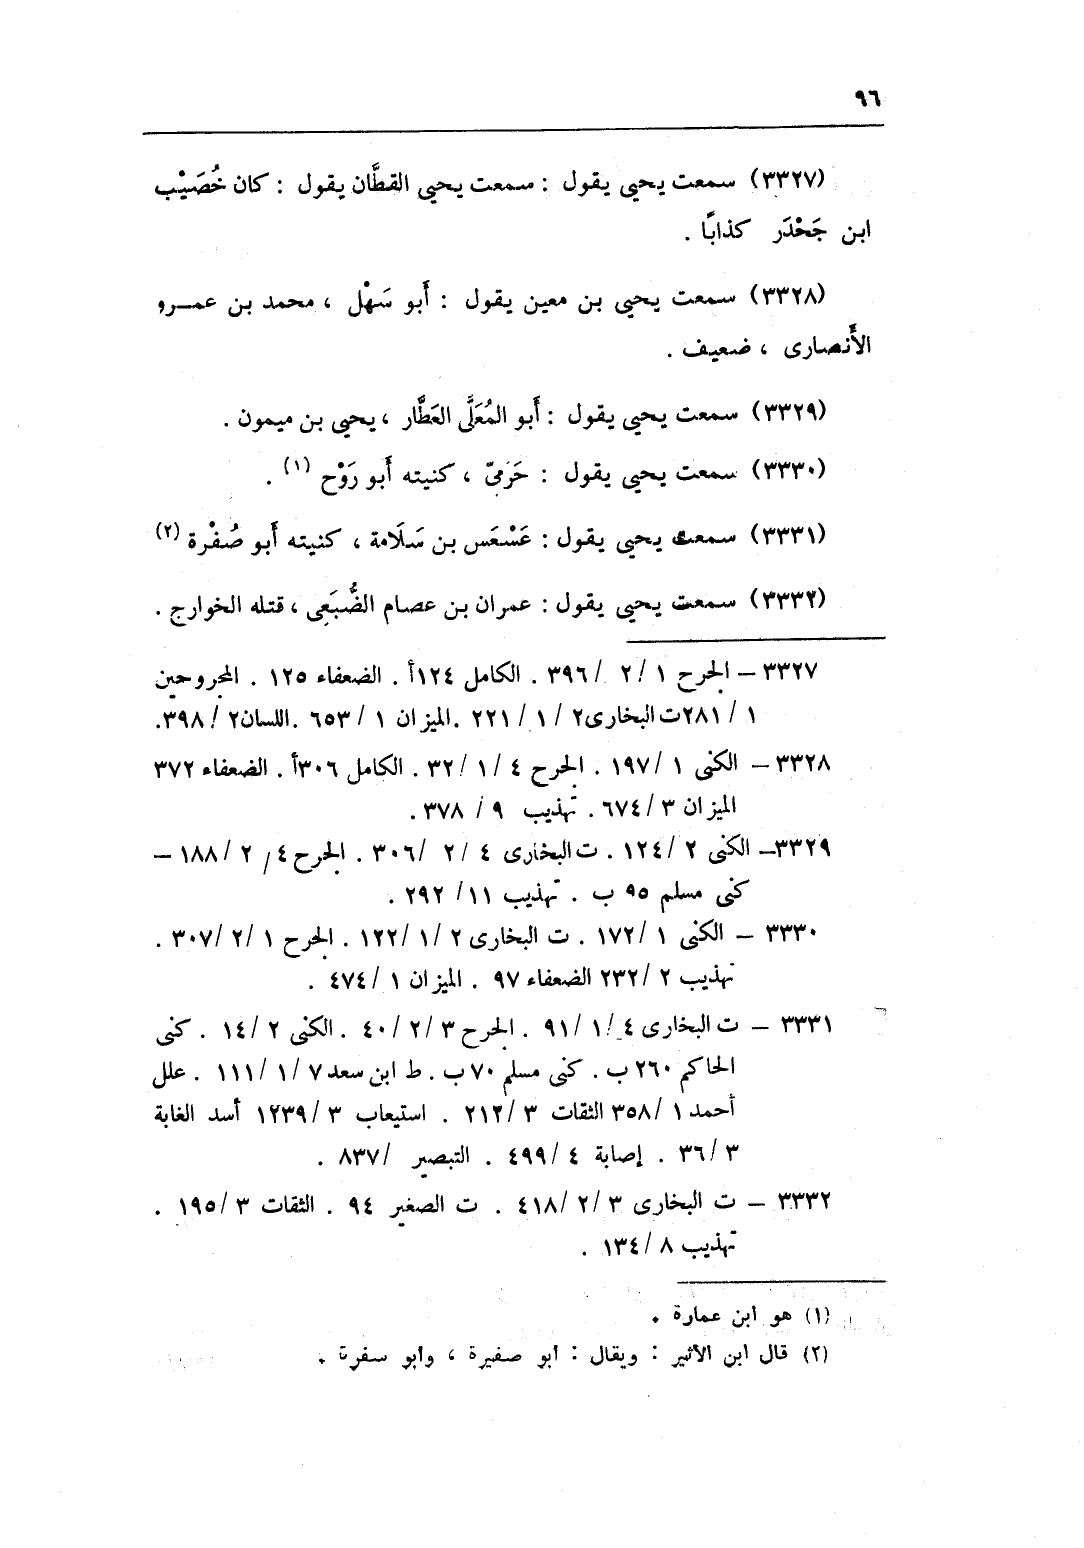 ٩٦
(٣٣٢٧) سمعت يحيى يقول : سمعت يحيى القطَّان يقول : كان خُصَيْب
ابن جَحْدَر كذابًا .
(٣٣٢٨) سمعت يحيى بن معين يقول : أَبو سَهْل ، محمد بن عمـــرو
الأَنصارى ، ضعيف .
(٣٣٢٩) سمعت يحيى يقول : أَبو المُعَلَّى العَطَّار ، يحيى بن ميمون .
(٣٣٣٠) سمعت يحيى يقول : حَرَمىّ ، كنيته أَبو رَوْح (١) .
(٣٣٣١) سمعت يحيى يقول : عَسْعَس بن سَلَامة ، كنيته أَبو صُفْرة (٢)
(٣٣٣٢) سمعت يحيى يقول : عمران بن عصام الضُّبَعِى ، قتله الخوارج .
٣٣٢٧ – الجرح ١ / ٢ / ٣٩٦ . الكامل ١٢٤أ . الضعفاء ١٢٥ . المجروحين
١ / ٢٨١ت البخارى٢ / ١ / ٢٢١ .الميزان ١ / ٦٥٣ .اللسان٢ / ٣٩٨.
٣٣٢٨ – الكنى ١ /١٩٧ . الجرح ٤ /١ /٣٢ . الكامل ٣٠٦أ . الضعفاء ٣٧٢
الميزان ٣ /٦٧٤ . تهذيب ٩ / ٣٧٨ .
٣٣٢٩– الكنى ٢ /١٢٤ . ت البخارى ٤ /٢ /٣٠٦ . الجرح ٤ / ٢ /١٨٨ –
كنى مسلم ٩٥ ب . تهذيب ١١ /٢٩٢ .
٣٣٣٠ – الكنى ١ /١٧٢ . ت البخارى ٢ /١ /١٢٢ . الجرح ١ /٢ /٣٠٧ .
تهذيب ٢ /٢٣٢ الضعفاء ٩٧ . الميزان ١ /٤٧٤ .
٣٣٣١ – ت البخارى ٤ /١ /٩١ . الجرح ٣ /٢ /٤٠ . الكنى ٢ /١٤ . كنى
الحاكم ٢٦٠ ب . كنى مسلم ٧٠ ب . ط ابن سعد ٧ /١ /١١١ . علل
أحمد ١ /٣٥٨ الثقات ٣ /٢١٢ . استيعاب ٣ /١٢٣٩ أسد الغابة
٣ /٣٦ . إصابة ٤ /٤٩٩ . التبصير /٨٣٧ .
٣٣٣٢ – ت البخارى ٣ /٢ /٤١٨ . ت الصغير ٩٤ . الثقات ٣ /١٩٥ .
تهذيب ٨ /١٣٤ .
(١) هو ابن عمارة .
(٢) قال ابن الأثير : ويقال : أبو صفيرة ، وأبو سفرة .